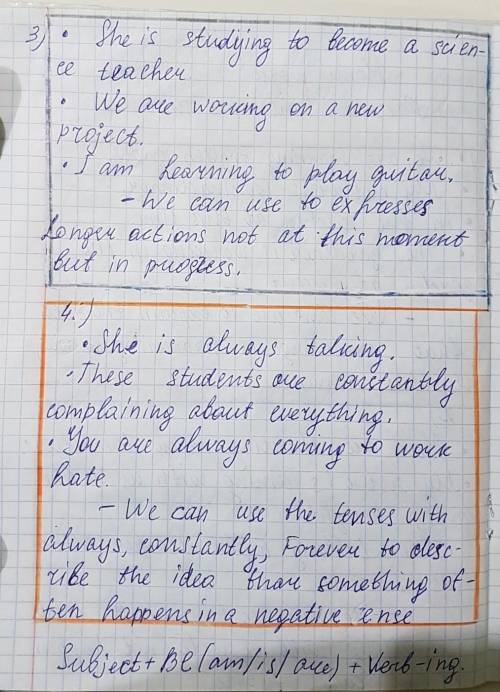 3) • She is studying to become a scien-
ce teacher
• We are working on a new
project.
• I am Learning to play guitar.
– We can use to expresses
Longer actions not at this moment
but in progress.
4.)
• She is always talking.
• These students are constantly
complaining about everything.
• You are always coming to work
hate.
– We can use the tenses with
always, constantly, Forever to desc-
ribe the idea than something of-
ten happens in a negative ense
Subject + BE (am/is/are) + Verb-ing.